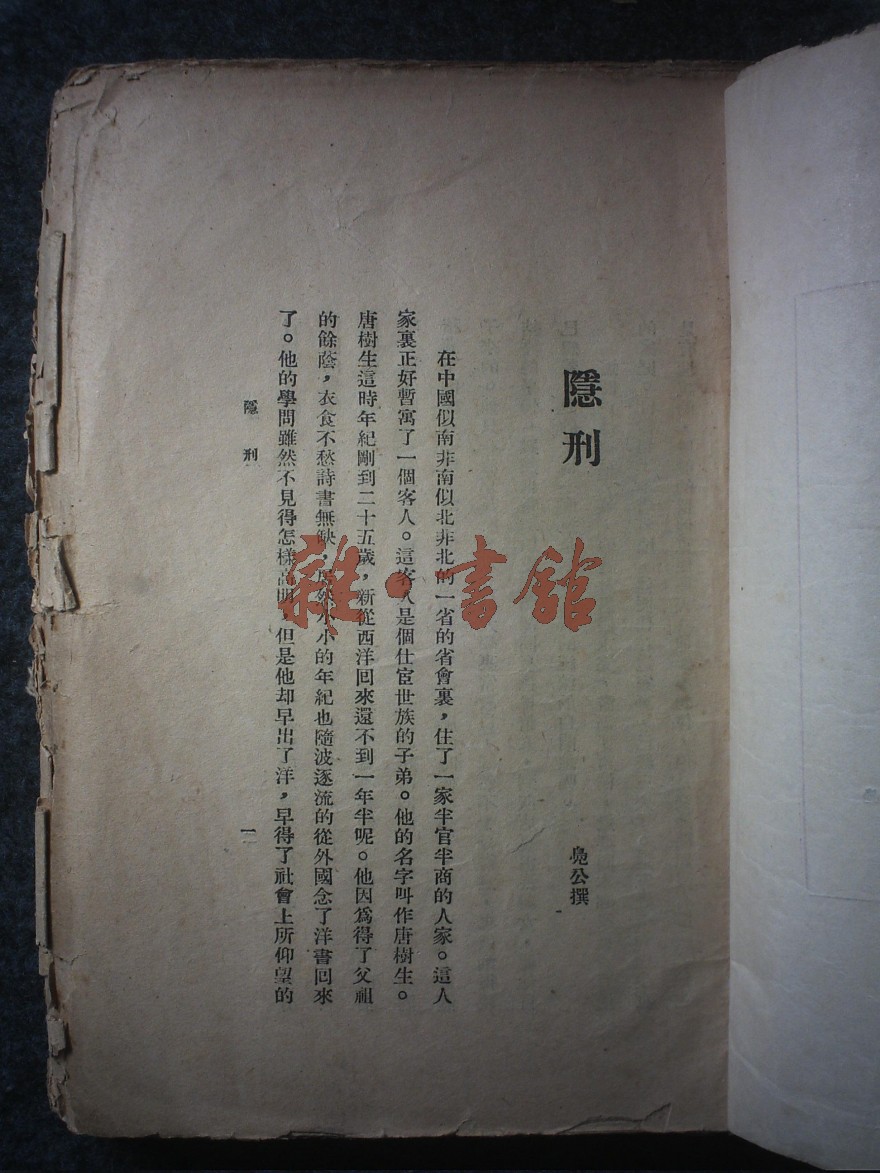 隱刑
鳧公撰
在中國似南非南似北非北的一省的省會裏，住了一家半官半商的人家。這人
家裏正好暫寓了一個客人。這客人是個仕宦世族的子弟。他的名字叫作唐樹生。
唐樹生這時年紀剛到二十五歲，新從西洋回來還不到一年半呢。他因爲得了父祖
的餘蔭，衣食不愁詩書無缺，居然小小的年紀也隨波逐流的從外國念了洋書回來
了。他的學問雖然不見得怎樣高明，但是他却早出了洋，早得了社會上所仰望的
隱刑
一
雜·書館